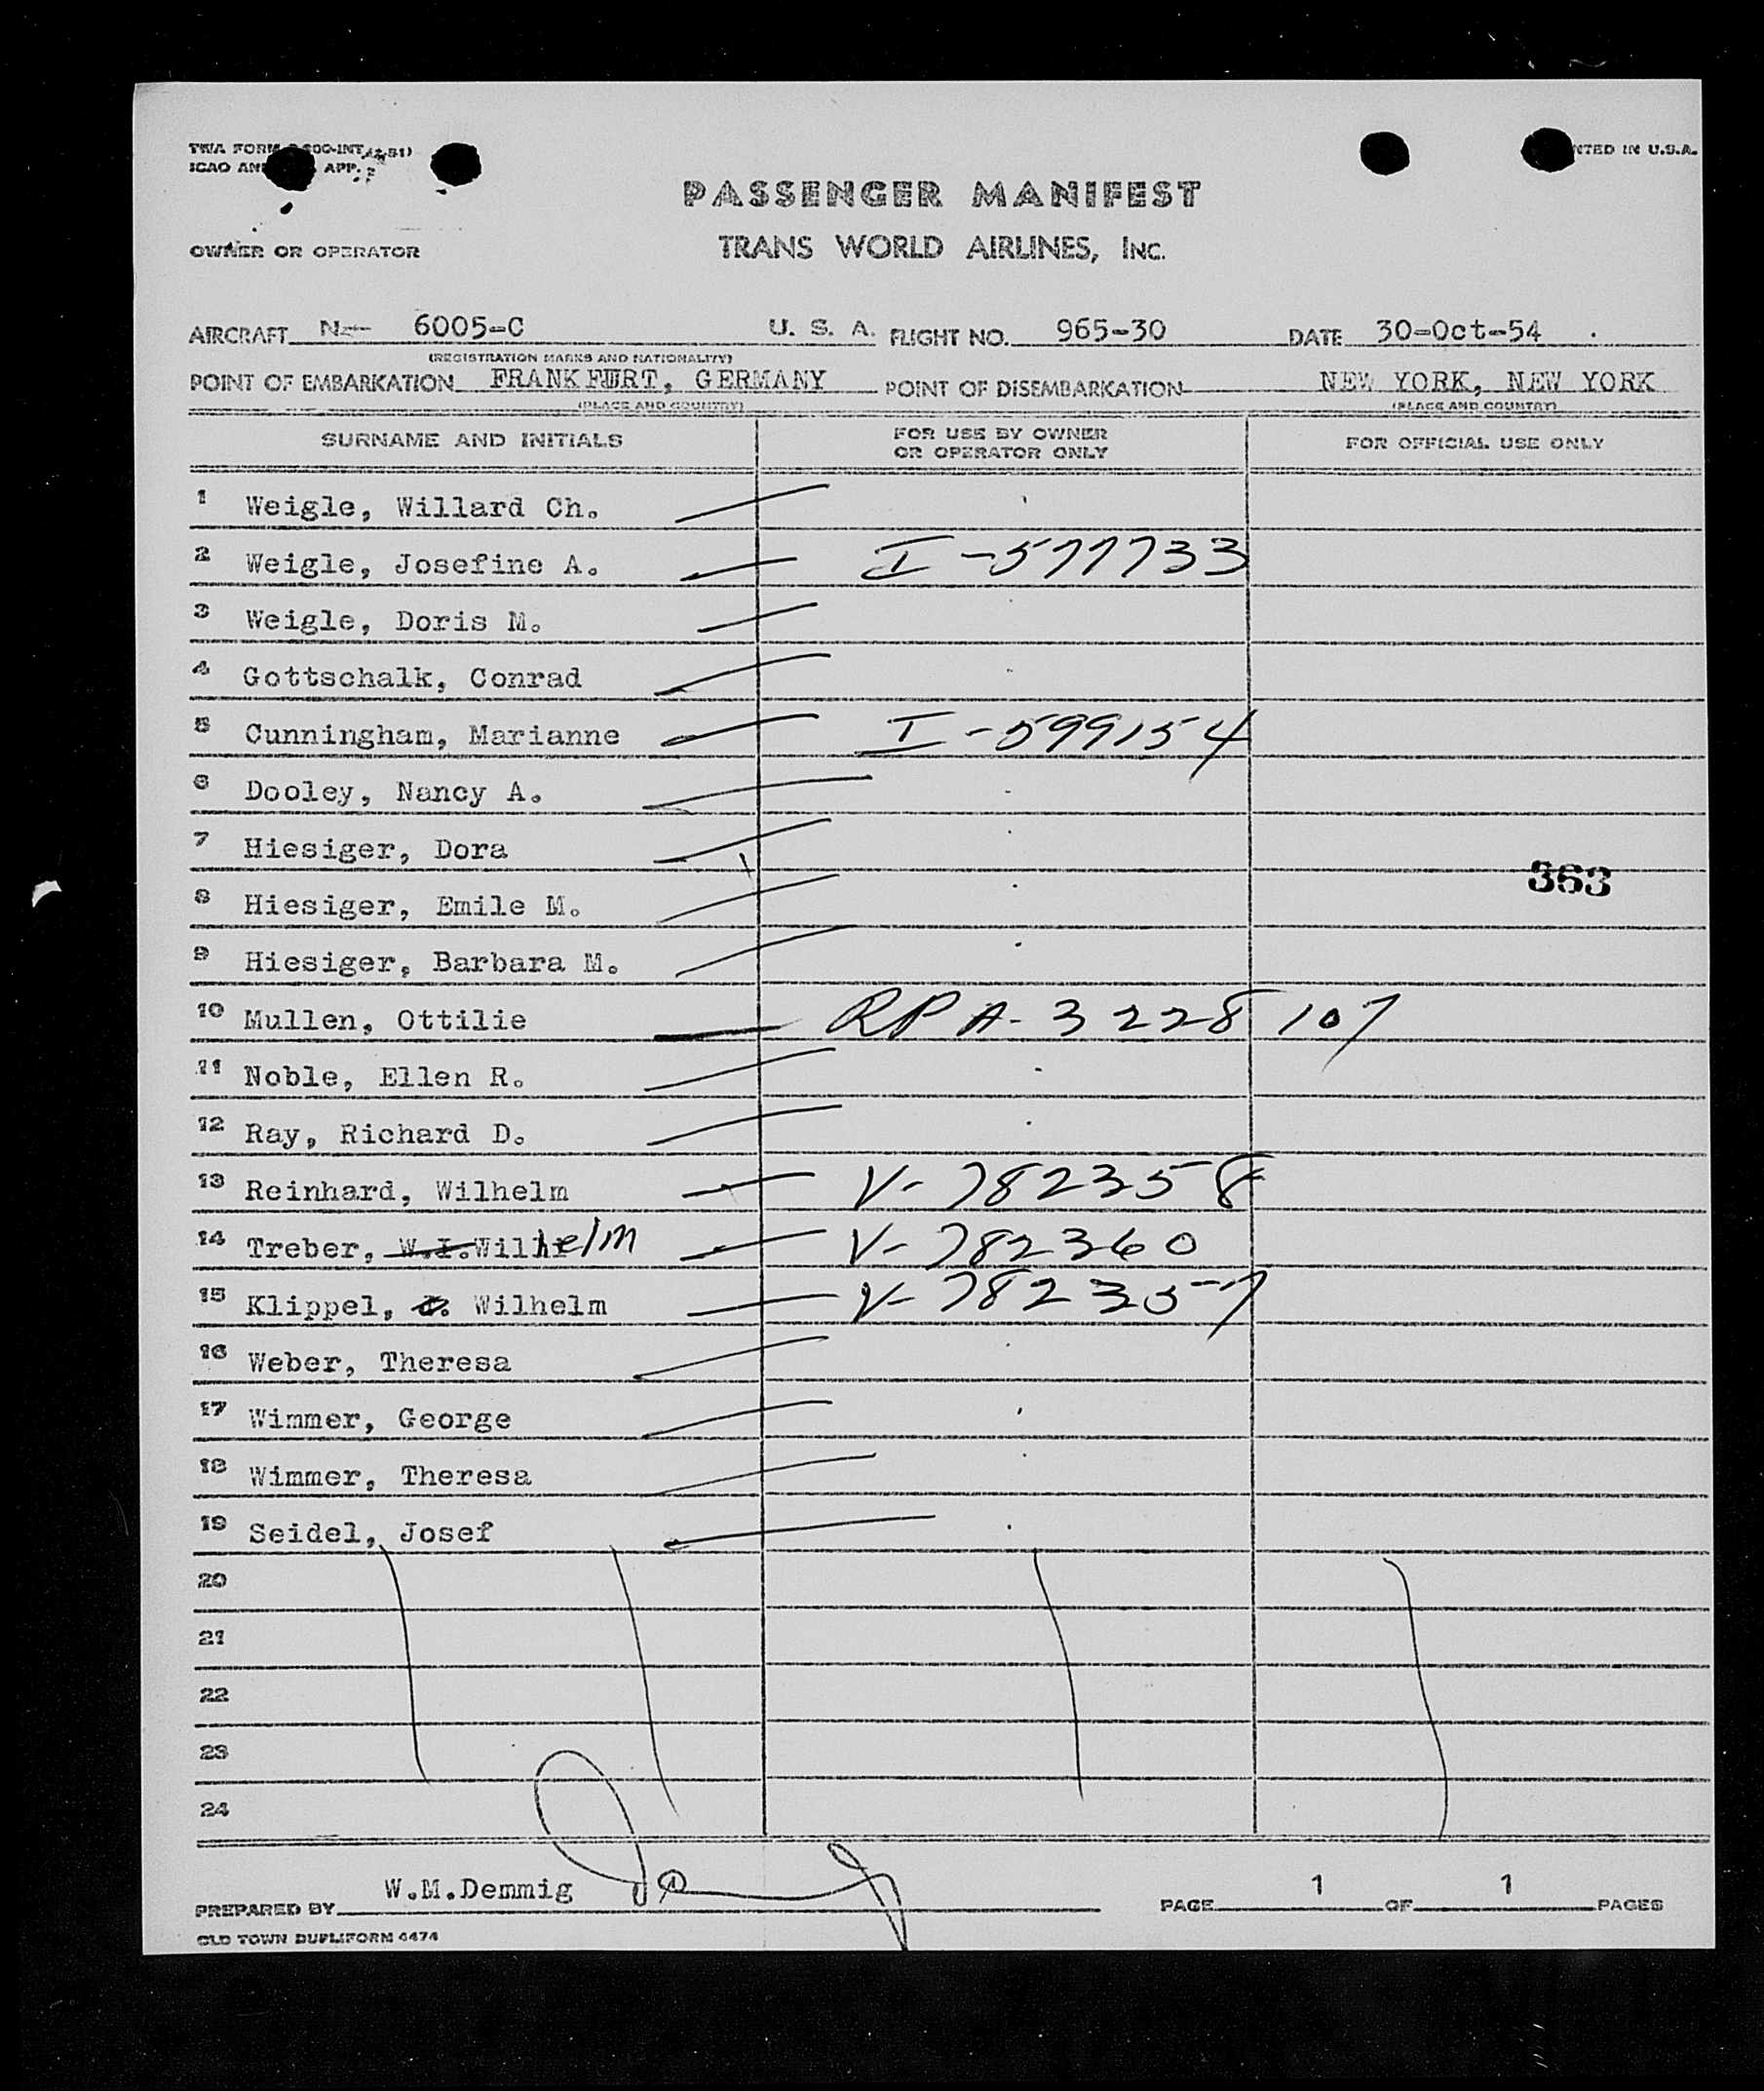 TWA FORM
ICAO APP.
PRINTED IN U.S.A.
PASSENGER MANIFEST
OWNER OR OPERATOR
TRANS WORLD AIRLINES, INC.
AIRCRAFT N- 6005-C U. S. A. FLIGHT NO. 965-30 DATE 30-Oct-54
(REGISTRATION MARKS AND NATIONALITY)
POINT OF EMBARKATION FRANKFURT, GERMANY POINT OF DISEMBARKATION NEW YORK, NEW YORK
(PLACE AND COUNTRY) (PLACE AND COUNTRY)
SURNAME AND INITIALS FOR USE BY OWNER OR OPERATOR ONLY FOR OFFICIAL USE ONLY
1 Weigle, Willard Ch.
2 Weigle, Josefine A. I-577733
3 Weigle, Doris M.
4 Gottschalk, Conrad
5 Cunningham, Marianne I-599154
6 Dooley, Nancy A.
7 Hiesiger, Dora
363
8 Hiesiger, Emile M.
9 Hiesiger, Barbara M.
10 Mullen, Ottilie RP A-3228107
11 Noble, Ellen R.
12 Ray, Richard D.
13 Reinhard, Wilhelm V-782358
14 Treber, W.I. Wilhelm V-782360
15 Klippel, Wilhelm V-782357
16 Weber, Theresa
17 Wimmer, George
18 Wimmer, Theresa
19 Seidel, Josef
20
21
22
23
24
PREPARED BY W.M.Demmig PAGE 1 OF 1 PAGES
OLD TOWN DUPLIFORM 4474